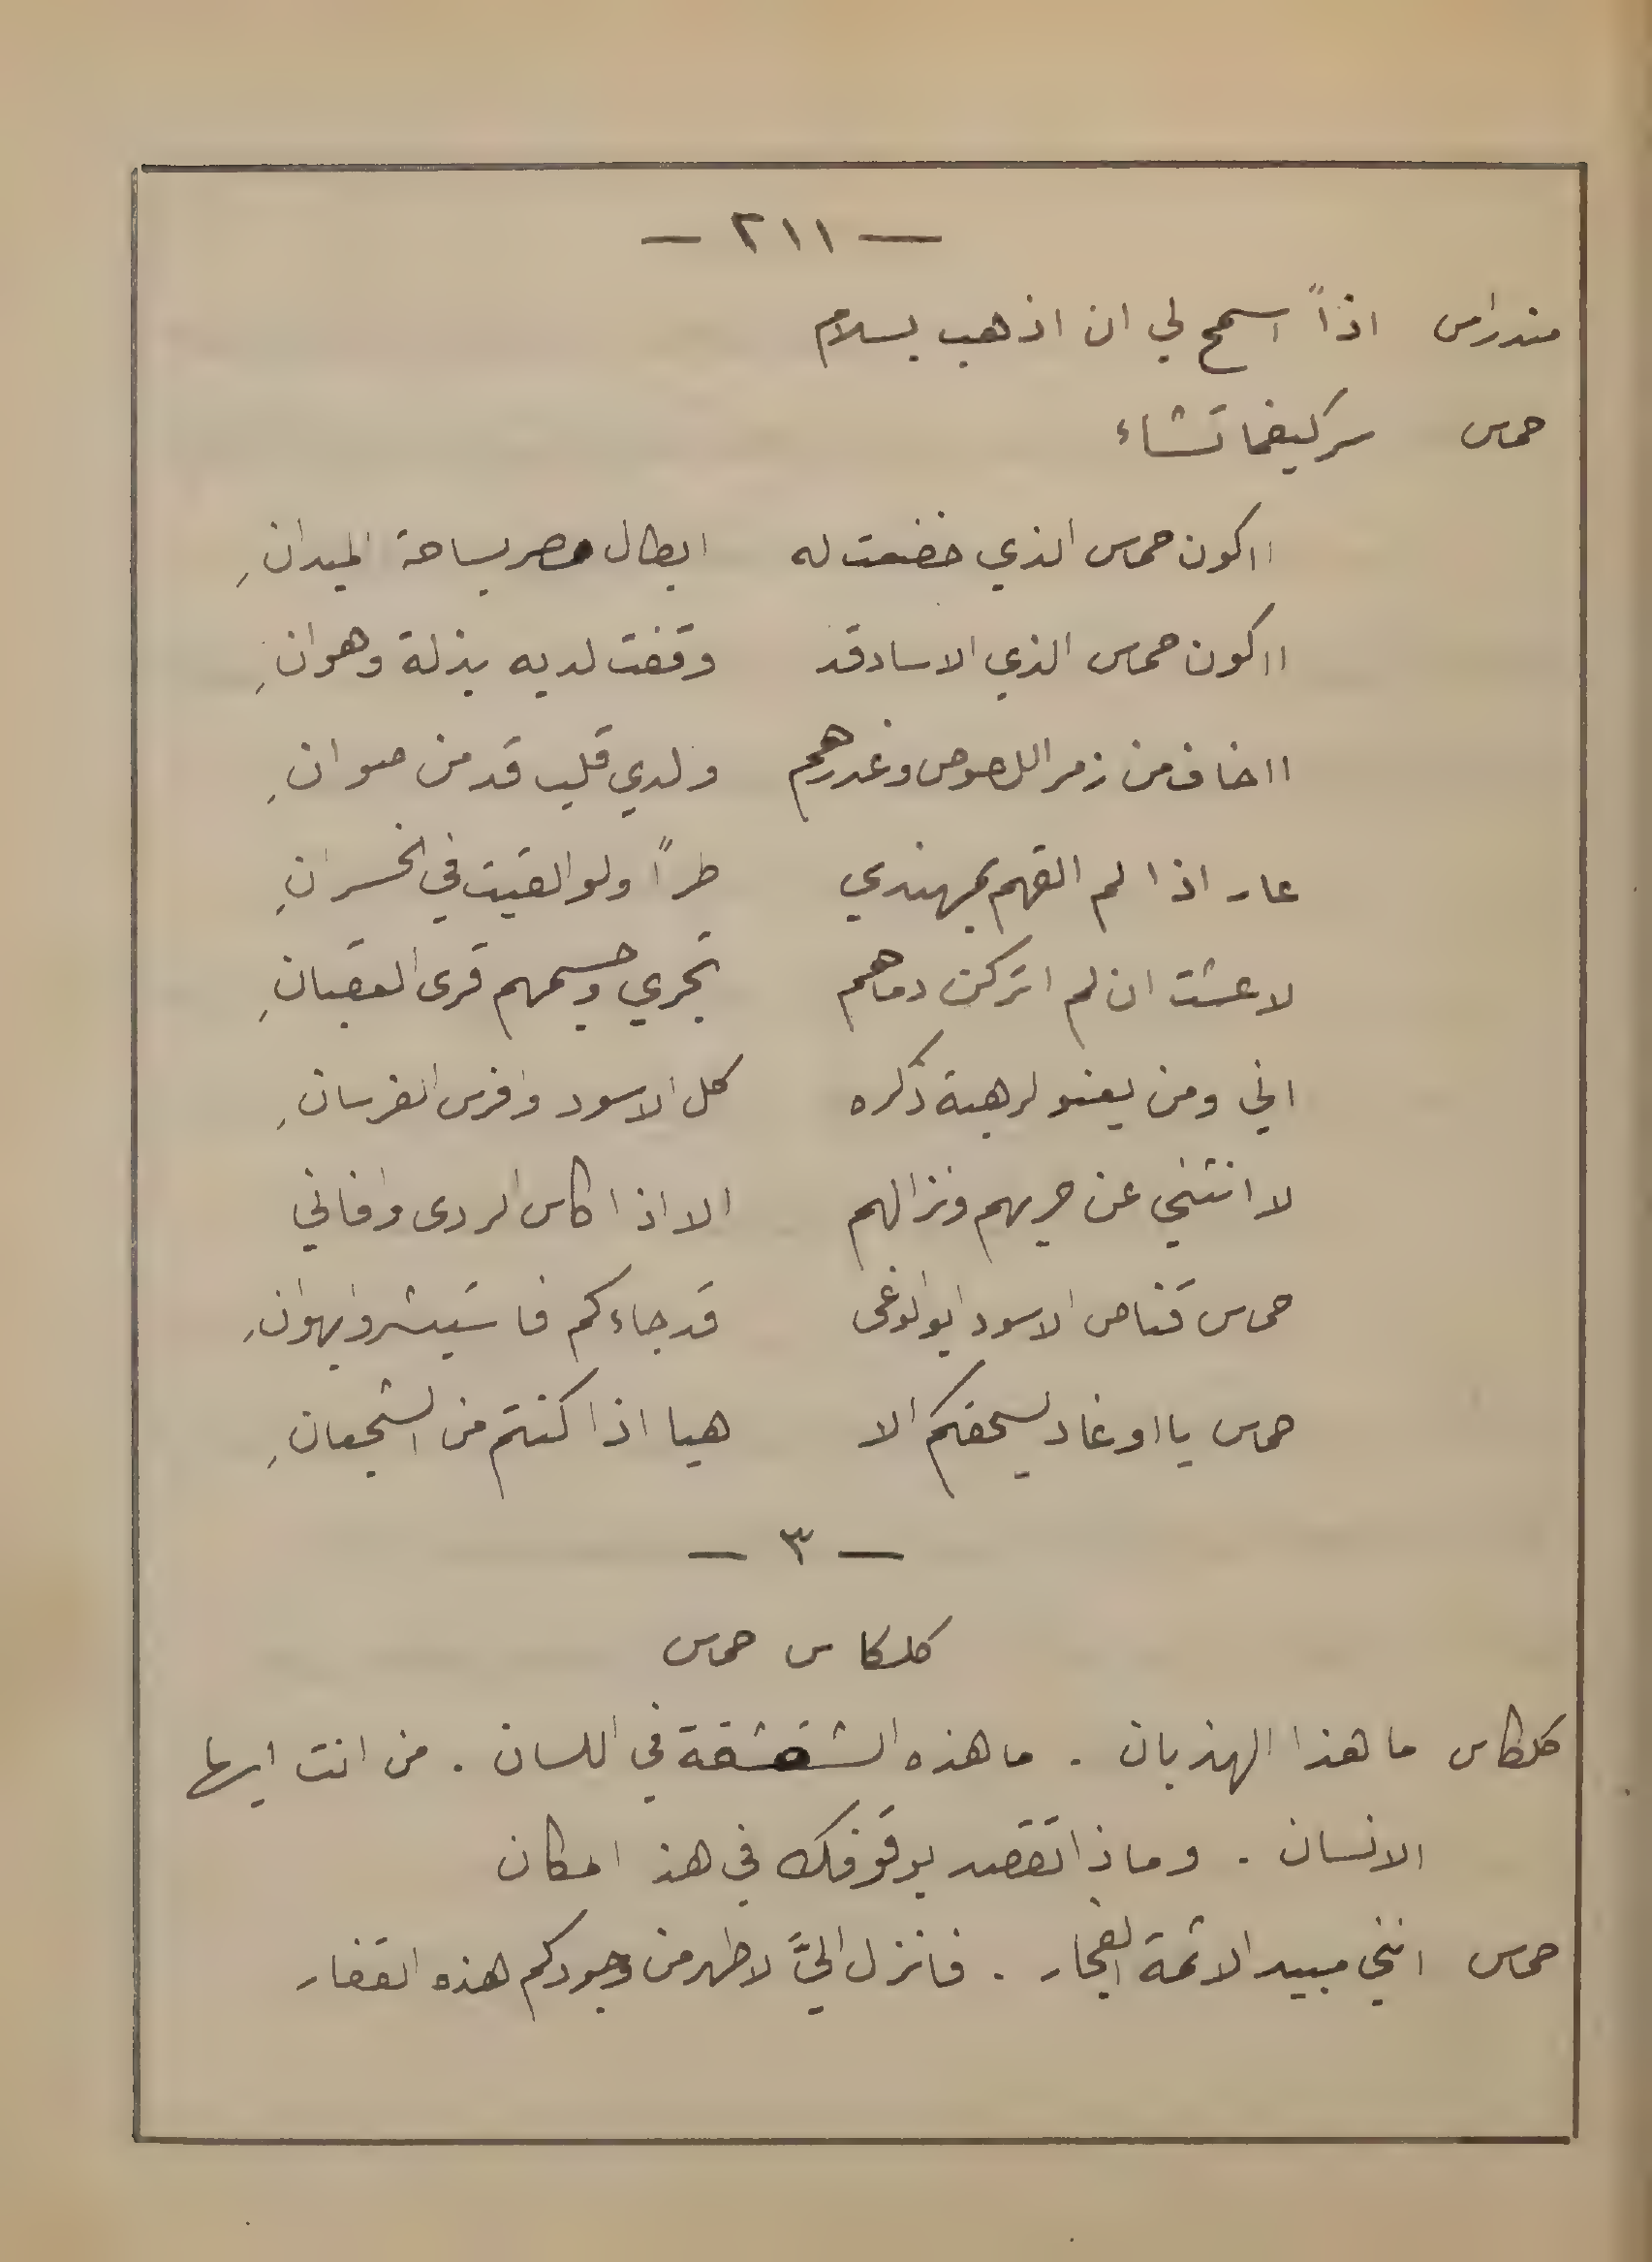 — ٢١١ —
مندراس اذاً اسمح لي ان اذهب بسلام
حماس سر كيفما تشاء
ااكون حماس الذي خضعت له ابطال مصر بساحة الميدانِ
ااكون حماس الذي الاساد قد وقفت لديه بذلة وهوانِ
ااخاف من زمر اللصوص وغدرهم ولدي قلب قد من صوانِ
عار اذا لم القهم بمهندي طراً ولو القيت في الخسرانِ
لا عشت ان لم اتركن دماهم تجري وجسمهم قرى العقبانِ
اني ومن يعنو لرهبة ذكره كل الاسود وافرس الفرسانِ
لا انثني عن حربهم ونزالهم الا اذا كاس الردى وافاني
حماس قناص الاسود ابو الوغى قد جاءكم فاستبشروا بهوانِ
حماس يا اوغاد يسحقكم الا هيا اذا كنتم من الشجعانِ
— ٣ —
كلكاس حماس
كلكاس ما هذا الهذيان . ما هذه الشقشقة في اللسان . من انت ايها
الانسان . وماذا تقصد بوقوفك في هذ المكان
حماس انني مبيد الاثمة الفجار . فانزل اليَّ لاطهر من وجودكم هذه القفار